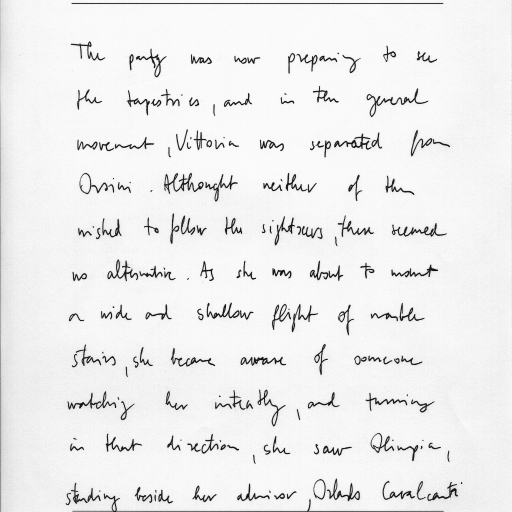 The party was now preparing to see
the tapestries, and in the general
movement, Vittoria was separated from
Orsini. Althought neither of them
wished to follow the sightseers, there seemed
no alternative. As she was about to mount
a wide and shallow flight of marble
stairs, she became aware of someone
watching her intently, and turning
in that direction, she saw Olimpia,
standing beside her admirer, Orlando Cavalcanti